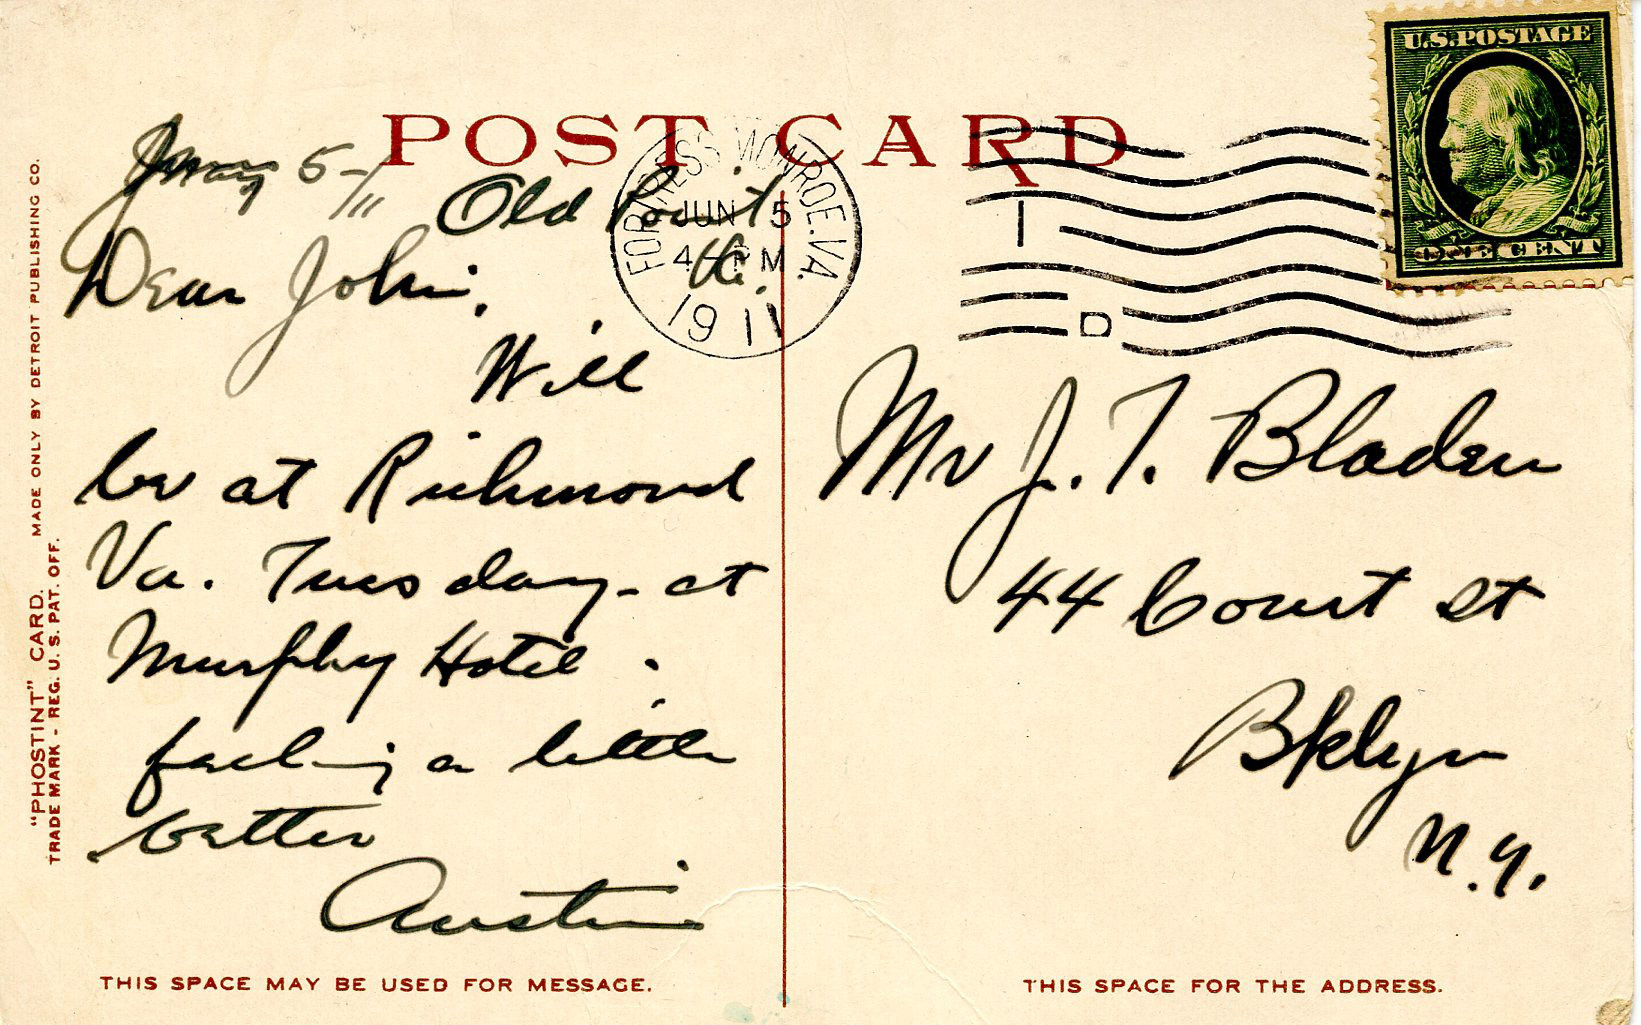 POST CARD
U.S. POSTAGE
ONE CENT
FORTRESS MONROE. VA.
JUN 5
4 - PM
1911
I
D
5-/11
Old Point
Va.
Dear John.
Will
be at Richmond
Va. Tuesday - at
Murphy Hotel.
feeling a little
better
Austin
Mr J. T. Bladen
44 Court St
Bklyn
N.Y.
"PHOSTINT" CARD. MADE ONLY BY DETROIT PUBLISHING CO.
TRADE MARK - REG. U.S. PAT. OFF.
THIS SPACE MAY BE USED FOR MESSAGE.
THIS SPACE FOR THE ADDRESS.